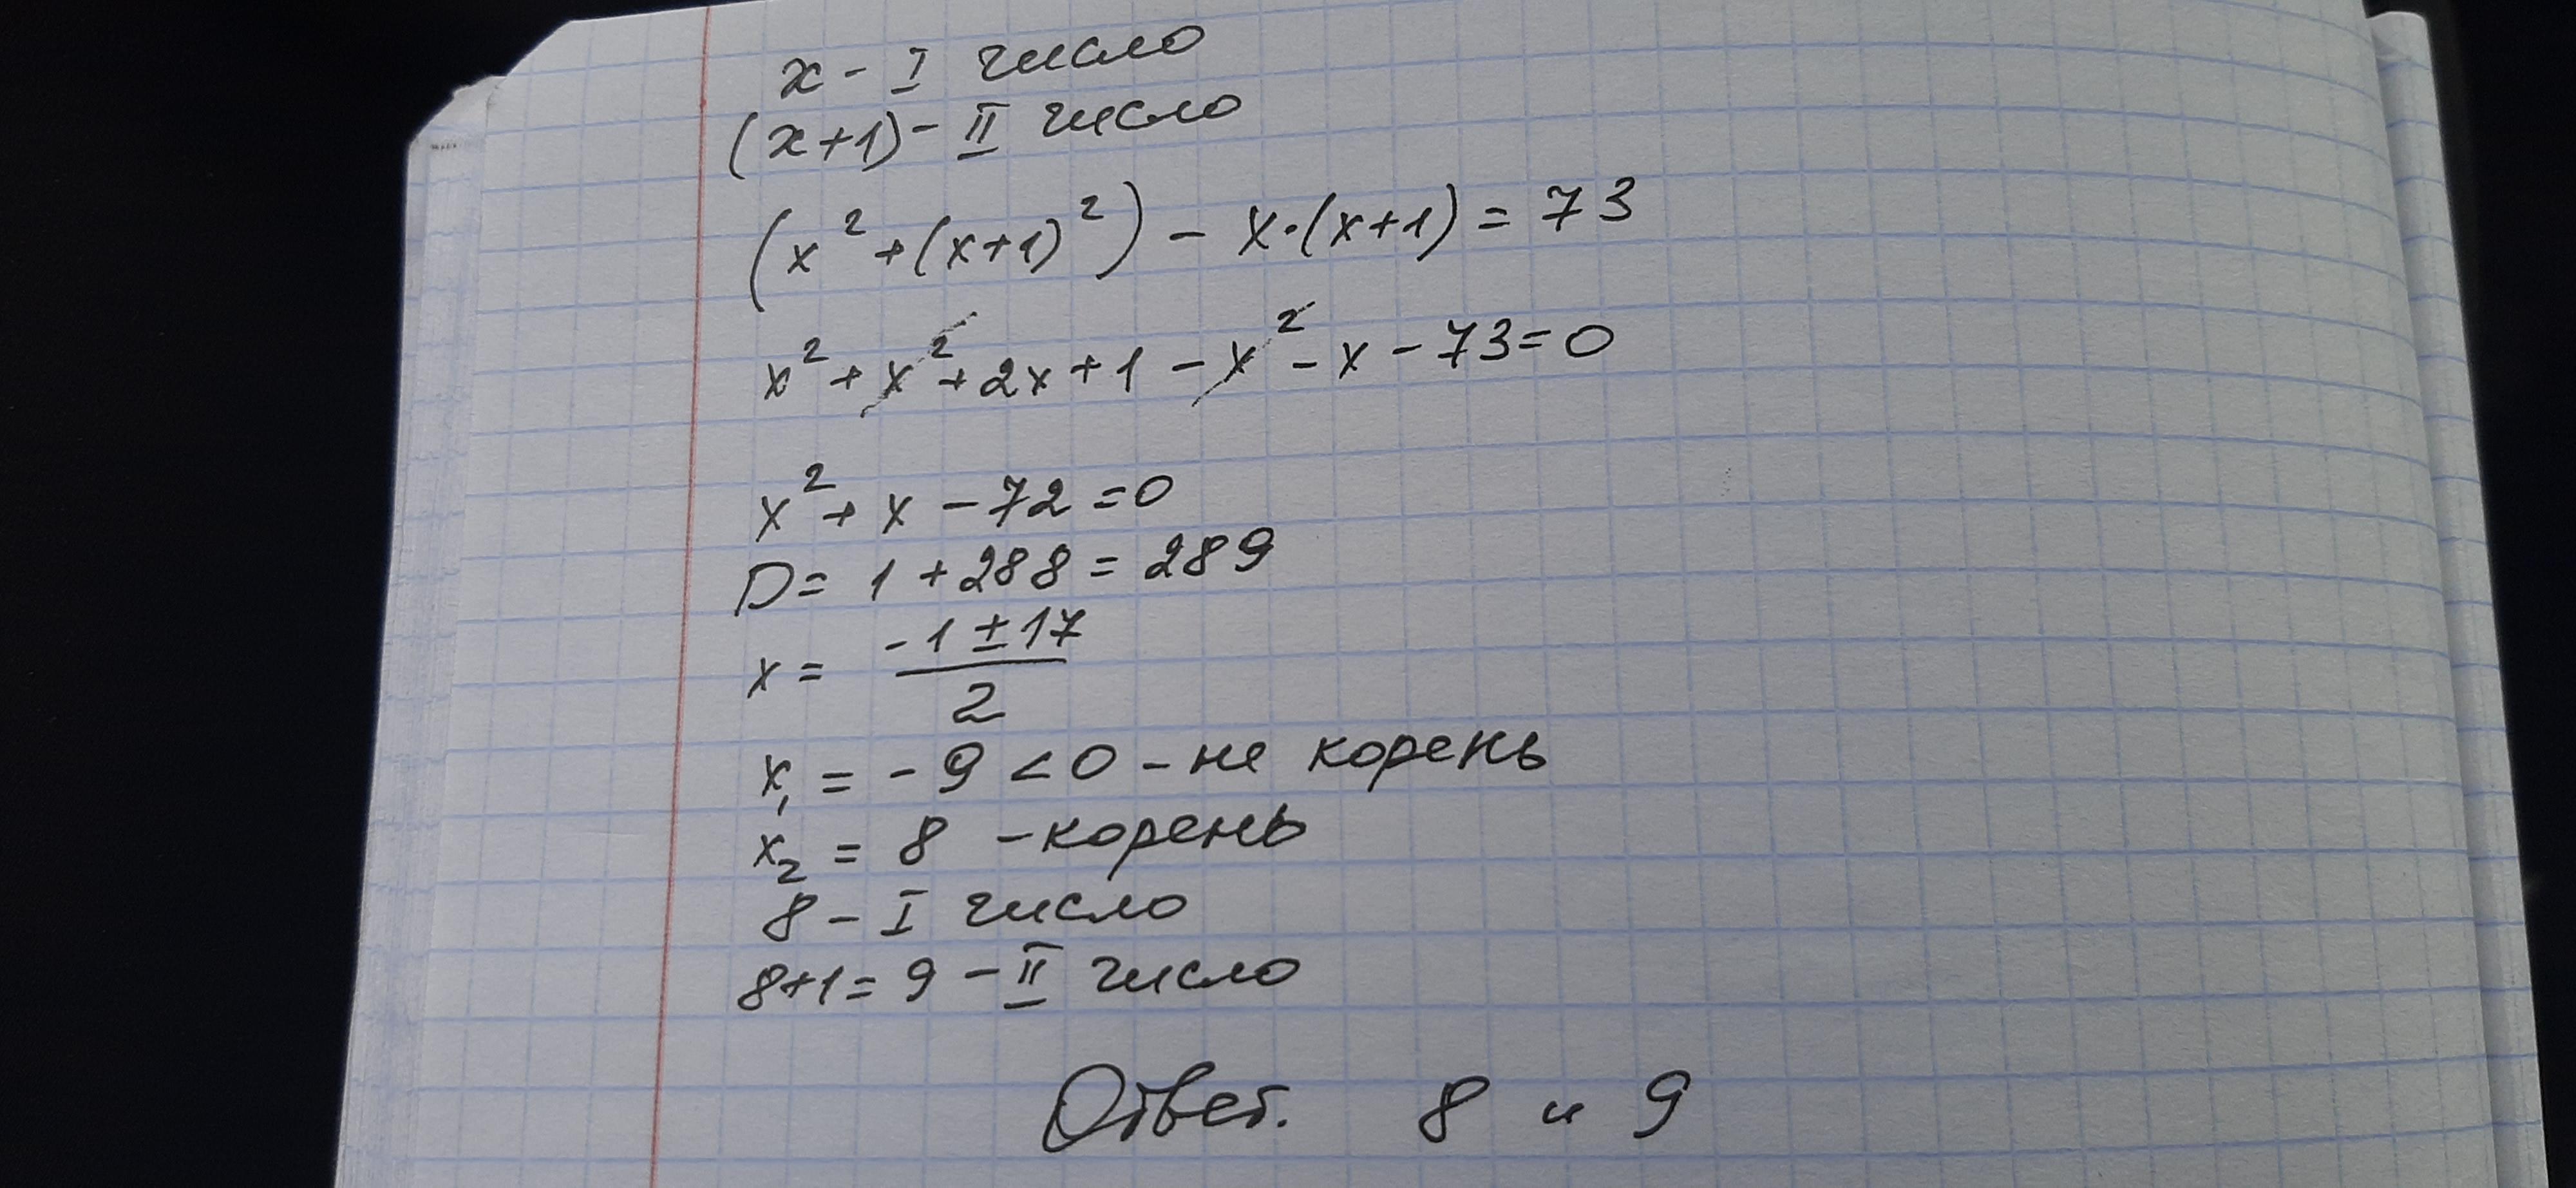 x - I число
(x+1) - II число
(x² + (x+1)²) - x·(x+1) = 73
x² + x² + 2x + 1 - x² - x - 73 = 0
x² + x - 72 = 0
D = 1 + 288 = 289
x = (-1 ± 17)/2
x₁ = -9 < 0 - не корень
x₂ = 8 - корень
8 - I число
8+1 = 9 - II число
Ответ. 8 и 9